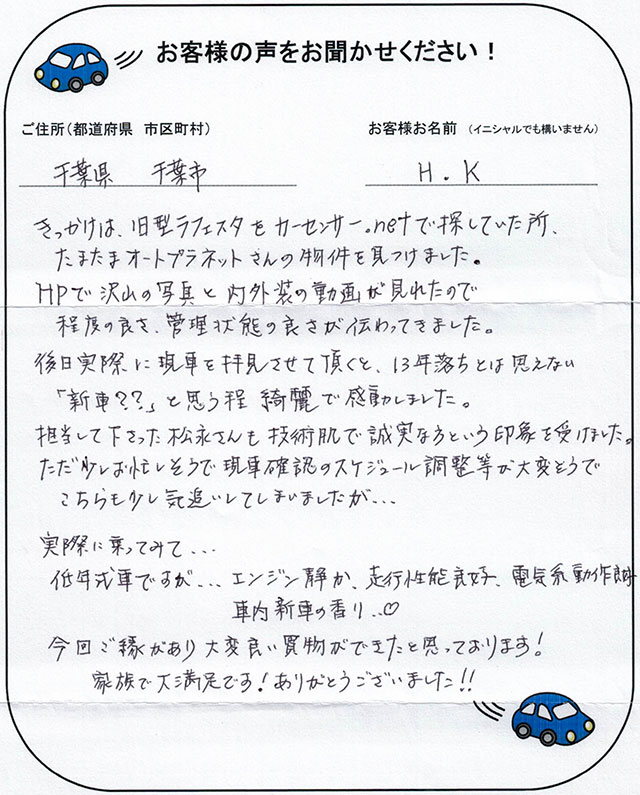 お客様の声をお聞かせください！
ご住所（都道府県　市区町村）
お客様お名前　（イニシャルでも構いません）
千葉県　千葉市
H.K
きっかけは、旧型ラフェスタをカーセンサー.netで探していた所、
たまたまオートプラネットさんの物件を見つけました。
HPで沢山の写真と内外装の動画が見れたので
程度の良さ、管理状態の良さが伝わってきました。
後日実際に現車を拝見させて頂くと、13年落ちとは思えない
「新車??」と思う程綺麗で感動しました。
担当して下さった松永さんも技術肌で誠実な方という印象を受けました。
ただ少しお忙しそうで現車確認のスケジュール調整等が大変そうで
こちらも少し気追いしてしまいましたが...
実際に乗ってみて...
低年式車ですが...エンジン静か、走行性能良好、電気系動作良好
車内新車の香り..♡
今回ご縁があり大変良い買物ができたと思っております！
家族で大満足です！ありがとうございました!!